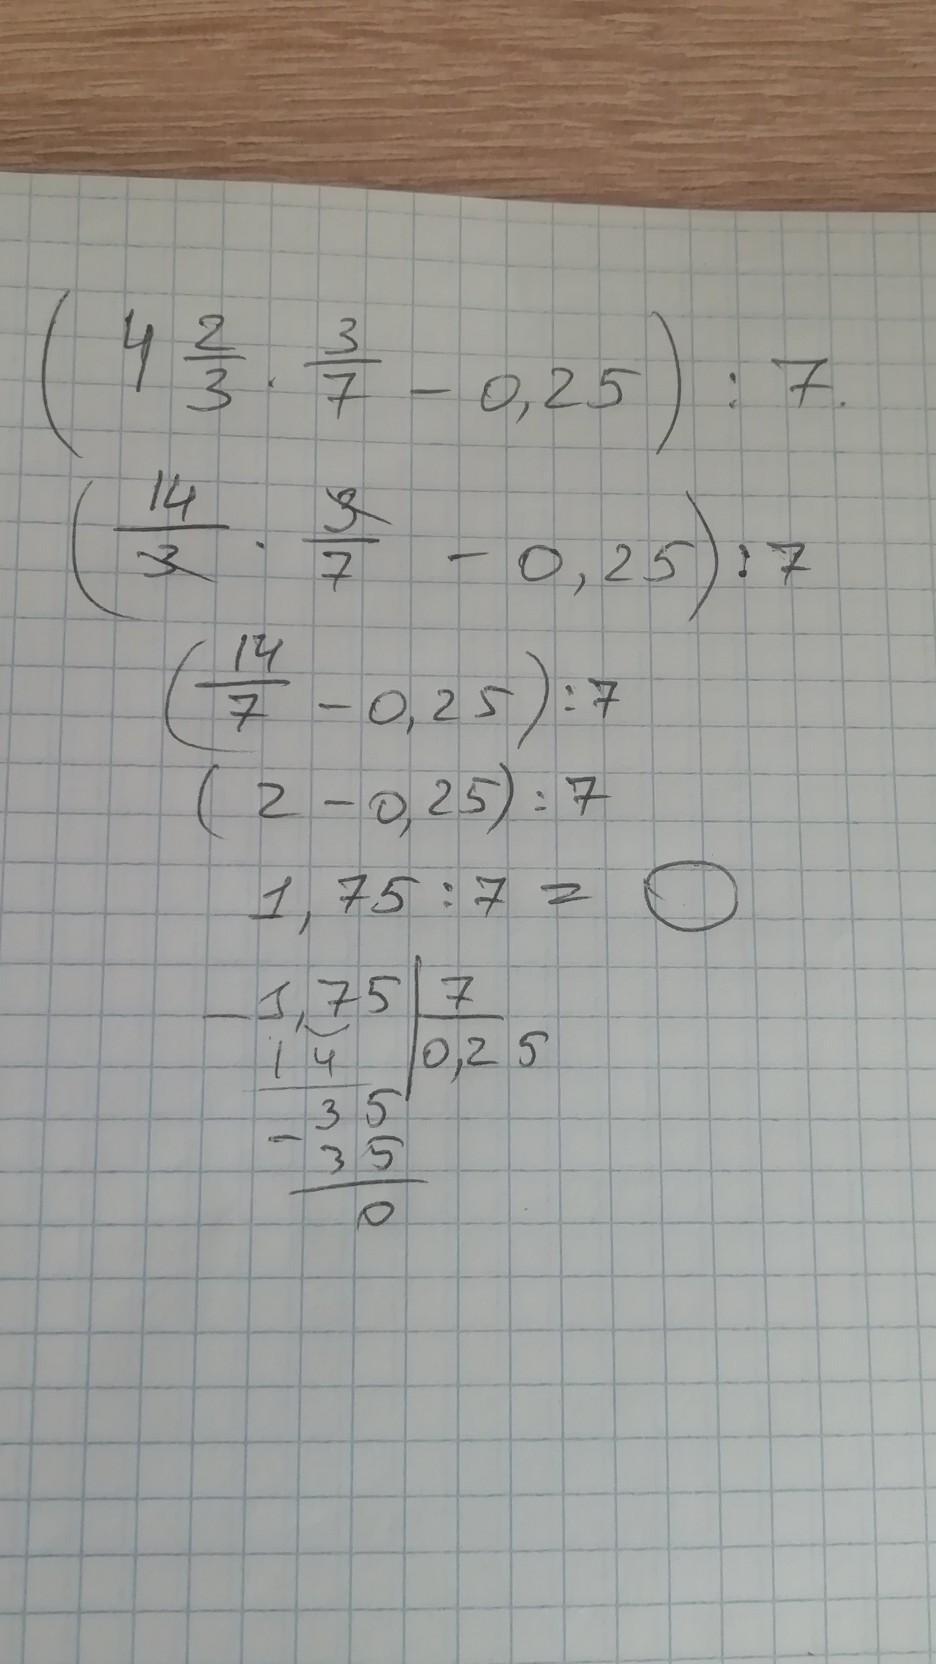 (4 2/3 · 3/7 - 0,25) : 7.
(14/3 · 3/7 - 0,25) : 7
(14/7 - 0,25) : 7
(2 - 0,25) : 7
1,75 : 7 =
- 1,75 | 7
14 | 0,25
35
- 35
0